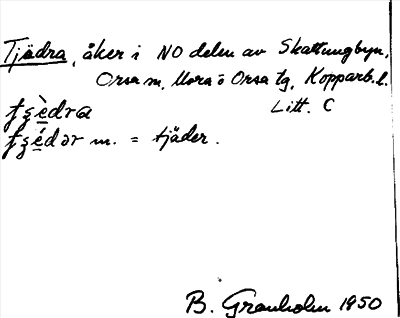 Tjädra, åker i NO delen av Skattungbyn,
Orsa sn, Mora o Orsa tg, Kopparb. l.
Litt. C
ƫʂè̱dra
ƫʂé̱dər m. = tjäder.
B. Granholm 1950